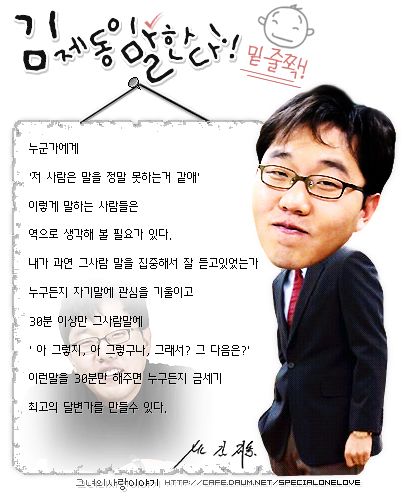 김제동이 말한다!!
밑줄쫙!
누군가에게
'저 사람은 말을 정말 못하는거 같애'
이렇게 말하는 사람들은
역으로 생각해 볼 필요가 있다.
내가 과연 그사람 말을 집중해서 잘 듣고있었는가
누구든지 자기말에 관심을 기울이고
30분 이상만 그사람말에
' 아 그렇지, 아 그렇구나, 그래서? 그 다음은?'
이런말을 30분만 해주면 누구든지 금세기
최고의 달변가를 만들수 있다.
그녀의사랑이야기 HTTP://CAFE.DAUM.NET/SPECIALONELOVE